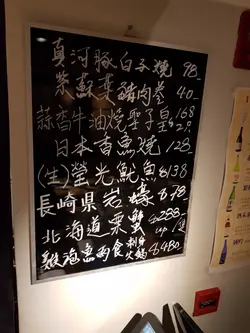 真河豚白子燒 98-
紫蘇葉豬肉卷 40-
蒜香牛油燒聖子皇 $168
日本香魚燒 128-
(生)螢光魷魚 $138
長崎県岩蠔 $78-
北海道栗蟹 $288- up/隻
雞泡魚兩食 刺身 火鍋 $480-